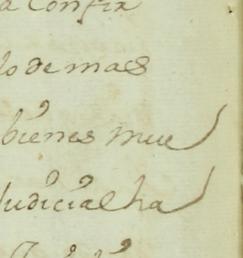 a Confir
lo de mas
bienes mue
Judicial ha